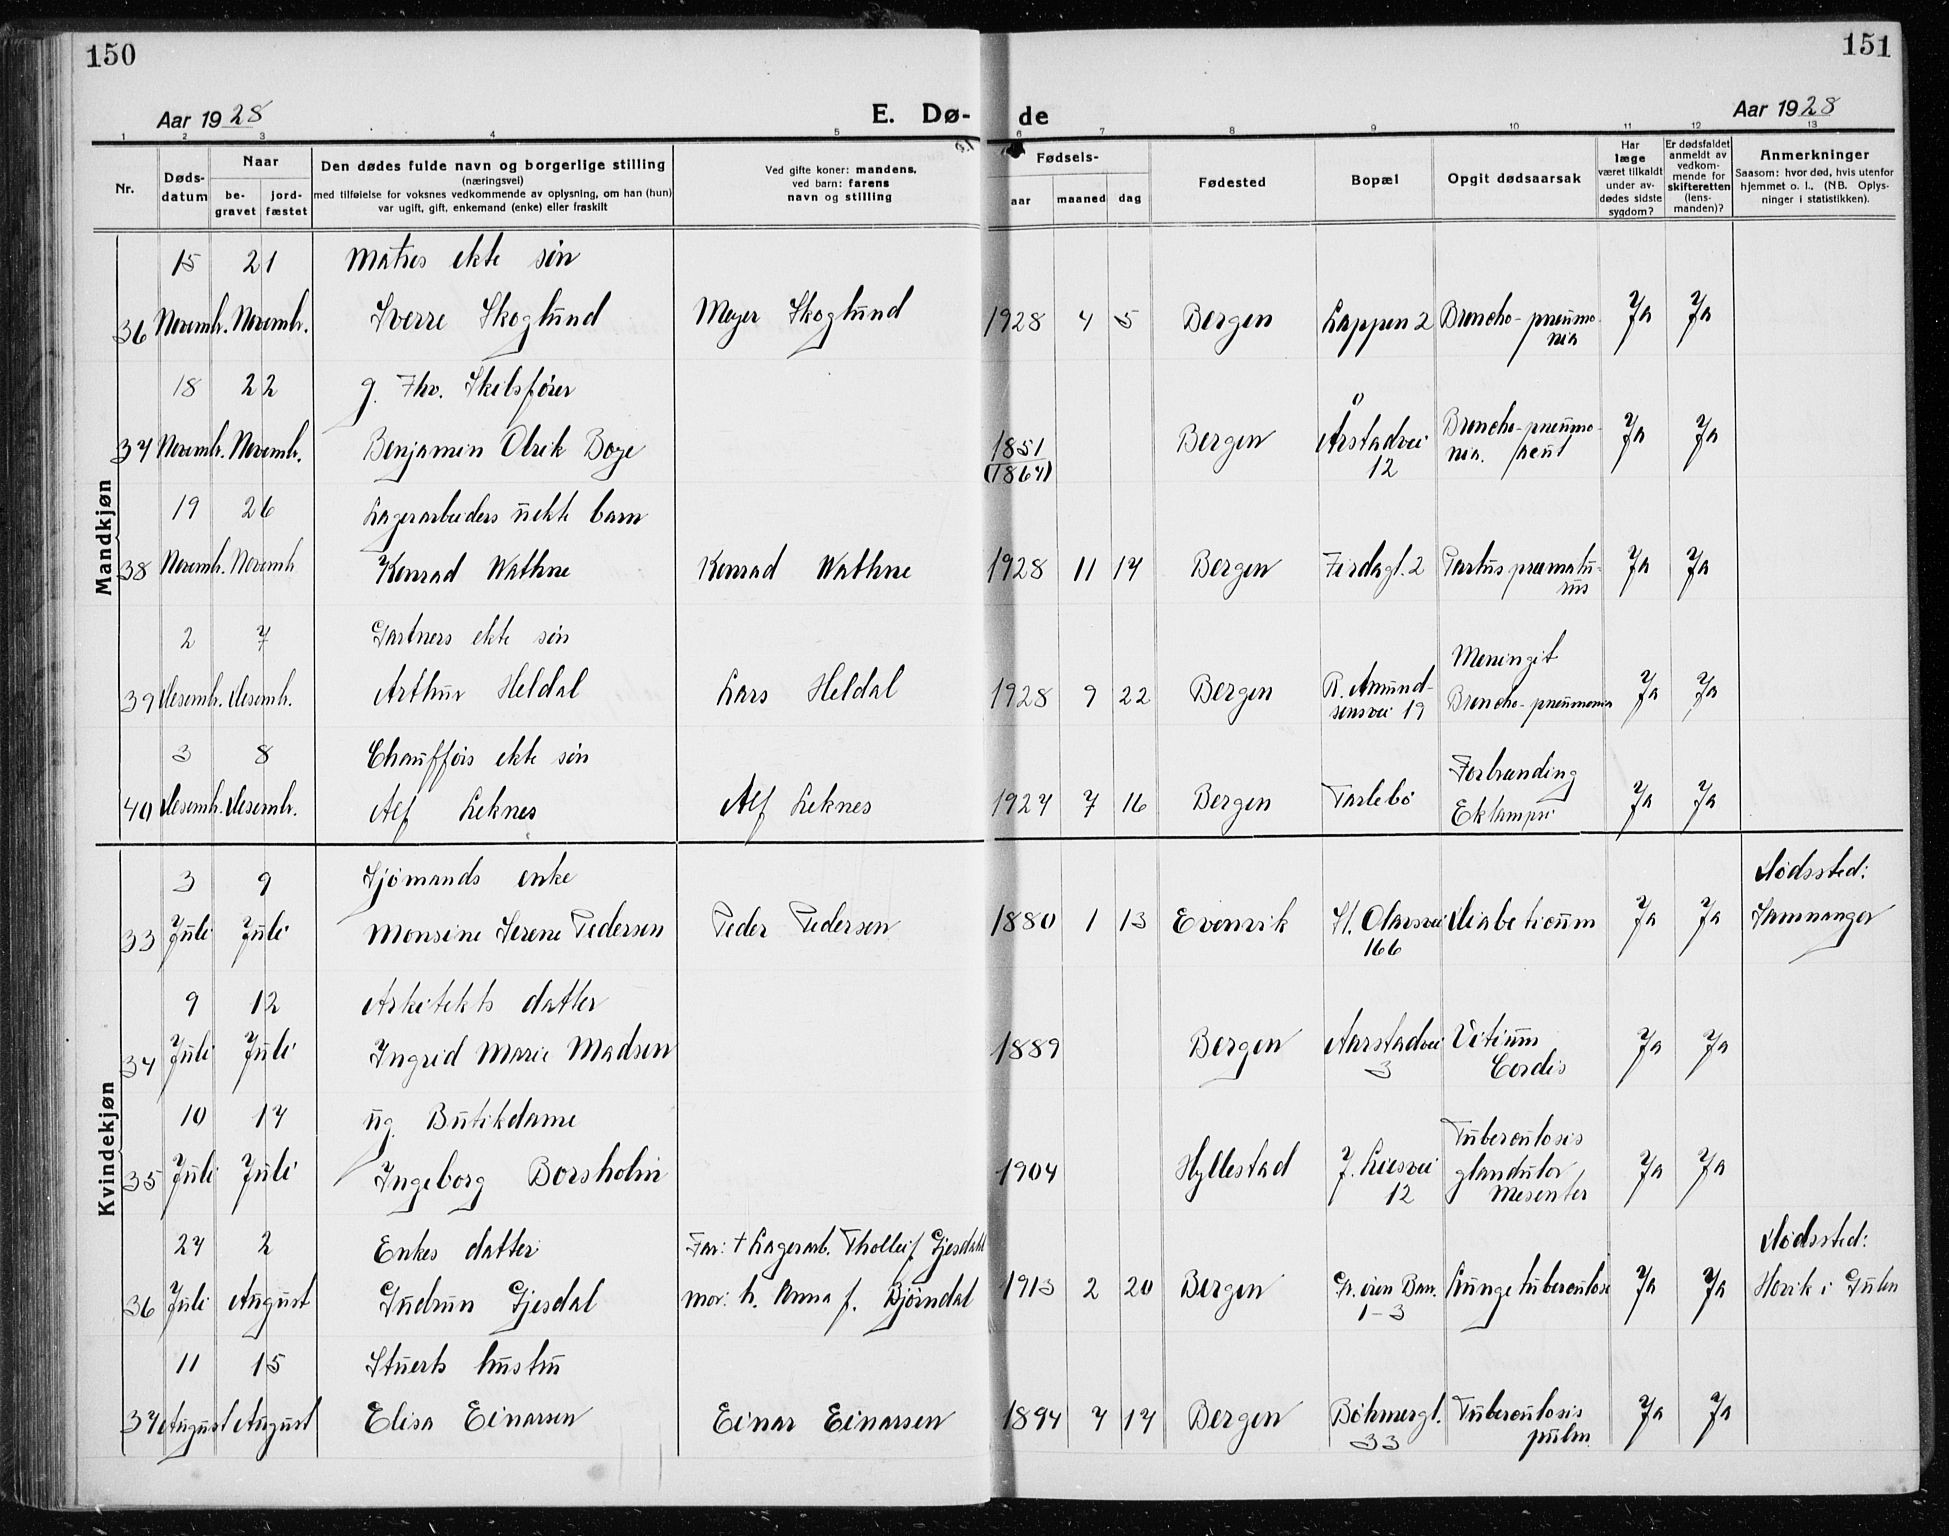 150
151
Aar 1928
E. Dø-
de
Aar 1928
1 2 3 4 5 6 7 8 9 10 11 12 13
Nr.
Døds-
datum
Naar
be-
gravet
jord-
fæstet
Den dødes fulde navn og borgerlige stilling
(næringsvei)
med tilføielse for voksnes vedkommende av oplysning, om han (hun)
var ugift, gift, enkemand (enke) eller fraskilt
Ved gifte koner: mandens,
ved barn: farens
navn og stilling
Fødsels-
aar maaned dag
Fødested
Bopæl
Opgit dødsaarsak
Har
læge
været tilkaldt
under av-
dødes sidste
sygdom?
Er dødsfaldet
anmeldt av
vedkom-
mende for
skifteretten
(lens-
manden)?
Anmerkninger
Saasom: hvor død, hvis utenfor
hjemmet o. l.. (NB. Oplys-
ninger i statistikken).
Mandkjøn
15 21 Matros ekte søn
36 Novemb. Novemb. Sverre Skoglund Meyer Skoglund 1928 4 5 Bergen Lappen 2 Broncho-pneumo- Ja Ja
nia
18 22 g. Fhv. Skibsfører
37 Novemb. Novemb. Benjamin Olrik Boye 1851 Bergen Årstadvei Broncho-pneumo- Ja Ja
(1867) 12 nia. acut
19 26 Lagerarbeiders uekte barn
38 Novemb. Novemb Konrad Wathne Konrad Wathne 1928 11 17 Bergen Firdagt. 2 Partus præmatu- Ja Ja
rus
2 7 Gartners ekte søn Meningit
39 Desemb. Desemb. Arthur Heldal Lars Heldal 1928 9 22 Bergen R. Amund- Broncho-pneumonia Ja Ja
sensvei 19
3 8 Chauffførs ekte søn Forbrænding
40 Desemb. Desemb. Alf Leknes Alf Leknes 1927 7 16 Bergen Tarlebø Eklampsi Ja Ja
Kvindekjøn
3 9 Sjømands enke Dødssted:
33 Juli Juli Monsine Serene Pedersen Peder Pedersen 1880 1 13 Evenvik St. Olavsvei Diabeticum Ja Ja Samnanger
166
9 12 Arkitekts datter
34 Juli Juli Ingrid Marie Madsen 1889 Bergen Aarstadvei Vitium Ja Ja
3 Cordis
10 17 ug. Butikdame Tuberculosis
35 Juli Juli Ingeborg Borsholm 1904 Hyllestad J. Liesvei glandulor Ja Ja
12 Mesenter
27 2 Enkes datter Far: † Lagerarb. Tholleif Gjesdahl Dødssted:
36 Juli August Gudrun Gjesdal Mor: h. Anna f. Bjørndal 1913 2 20 Bergen Lungetuberculose Ja Ja i Gulen
1-3
11 15 Stuerts hustru
37 August August Elisa Einarsen Einar Einarsen 1894 7 17 Bergen Bøhmergt. Tuberculosis Ja Ja
33 pulm